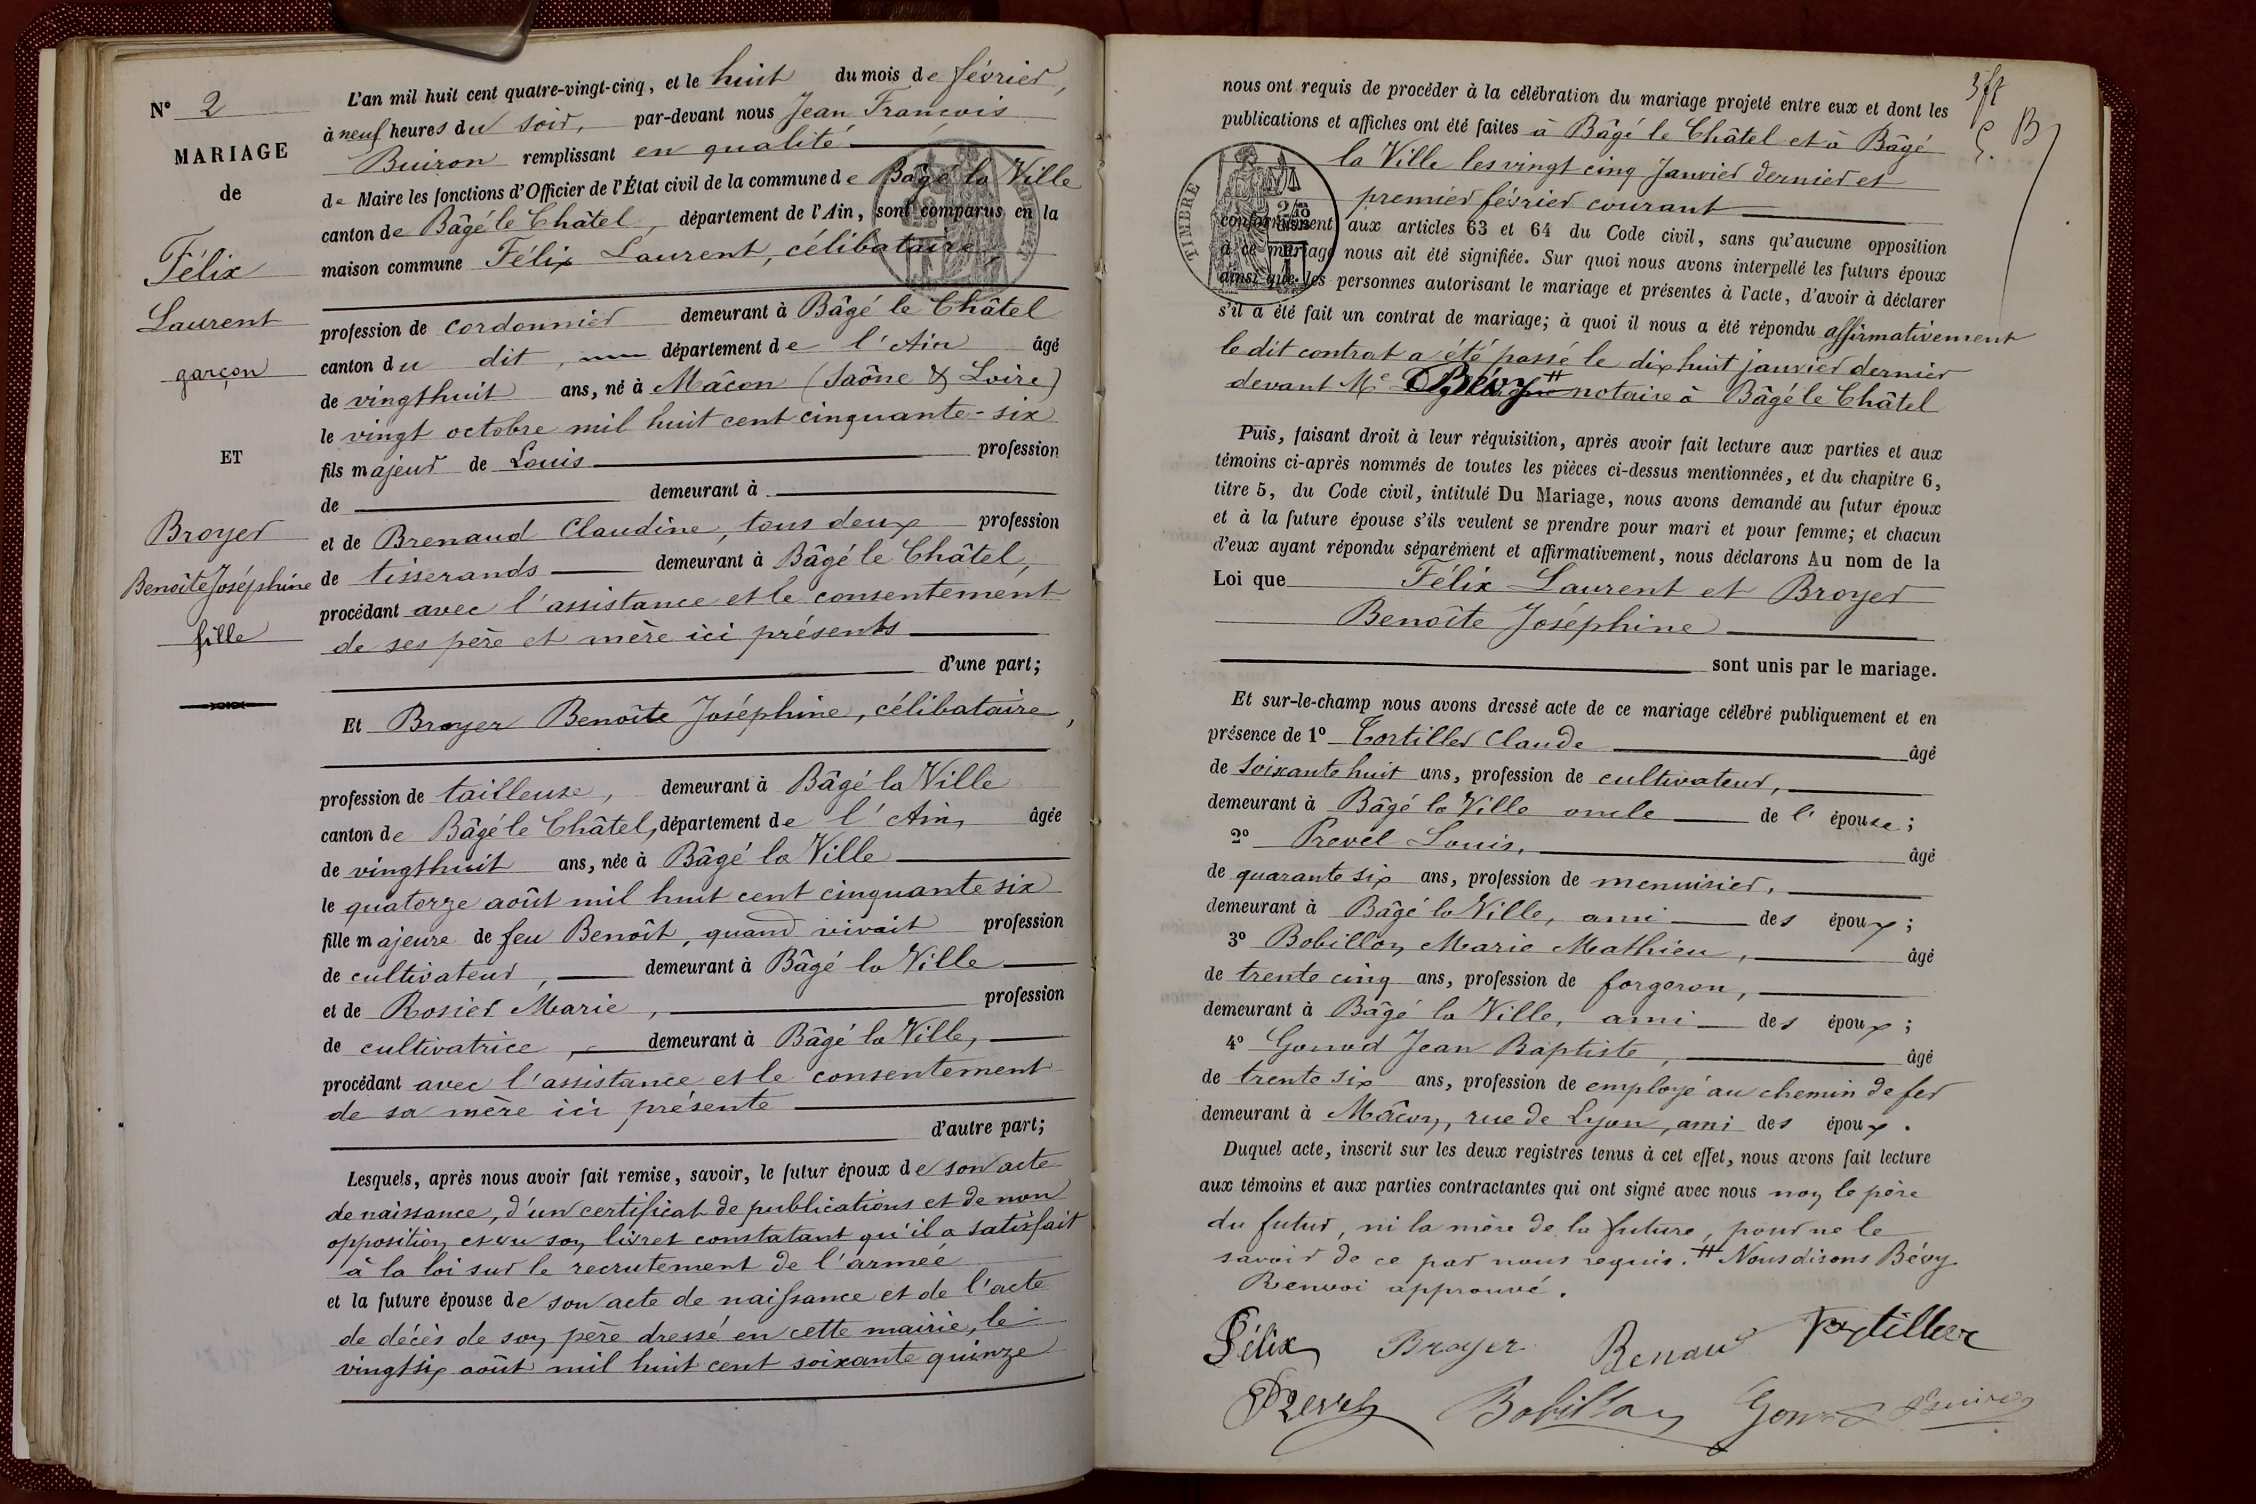 N° 2
MARIAGE
de
Félix
Laurent
garçon
ET
Broyer
Benoîte Joséphine
fille
L'an mil huit cent quatre-vingt-cinq, et le huit du mois de février,
à neuf heures du soir, par-devant nous Jean François
Buiron remplissant en qualité
de Maire les fonctions d'Officier de l'État civil de la commune de Bâgé la Ville
canton de Bâgé le Châtel, département de l'Ain, sont comparus en la
maison commune Félix Laurent, célibataire,
profession de cordonnier demeurant à Bâgé le Châtel
canton du dit, département de l'Ain âgé
de vingthuit ans, né à Mâcon (Saône & Loire)
le vingt octobre mil huit cent cinquante-six
fils majeur de Louis profession
de demeurant à
et de Brenaud Claudine, tous deux profession
de tisserands demeurant à Bâgé le Châtel,
procédant avec l'assistance et le consentement
de ses père et mère ici présents
d'une part;
Et Broyer Benoîte Joséphine, célibataire,
profession de tailleuse, demeurant à Bâgé la Ville
canton de Bâgé le Châtel, département de l'Ain, âgée
de vingthuit ans, née à Bâgé la Ville
le quatorze août mil huit cent cinquante six
fille majeure de feu Benoît, quand vivait profession
de cultivateur, demeurant à Bâgé la Ville
et de Rosier Marie, profession
de cultivatrice, demeurant à Bâgé la Ville,
procédant avec l'assistance et le consentement
de sa mère ici présente
d'autre part;
Lesquels, après nous avoir fait remise, savoir, le futur époux de son acte
de naissance, d'un certificat de publications et de non
opposition et vu son livret constatant qu'il a satisfait
à la loi sur le recrutement de l'armée
et la future épouse de son acte de naissance et de l'acte
de décès de son père dressé en cette mairie, le
vingtsix août mil huit cent soixante quinze
nous ont requis de procéder à la célébration du mariage projeté entre eux et dont les
publications et affiches ont été faites à Bâgé le Châtel et à Bâgé
la Ville les vingt cinq Janvier dernier et
premier février courant
TIMBRE
conformément aux articles 63 et 64 du Code civil, sans qu'aucune opposition
à ce mariage nous ait été signifiée. Sur quoi nous avons interpellé les futurs époux
ainsi que les personnes autorisant le mariage et présentes à l'acte, d'avoir à déclarer
s'il a été fait un contrat de mariage; à quoi il nous a été répondu affirmativement
le dit contrat a été passé le dix huit janvier dernier
devant Me Bévy # notaire à Bâgé le Châtel
Puis, faisant droit à leur réquisition, après avoir fait lecture aux parties et aux
témoins ci-après nommés de toutes les pièces ci-dessus mentionnées, et du chapitre 6,
titre 5, du Code civil, intitulé Du Mariage, nous avons demandé au futur époux
et à la future épouse s'ils veulent se prendre pour mari et pour femme; et chacun
d'eux ayant répondu séparément et affirmativement, nous déclarons Au nom de la
Loi que Félix Laurent et Broyer
Benoîte Joséphine
sont unis par le mariage.
Et sur-le-champ nous avons dressé acte de ce mariage célébré publiquement et en
présence de 1° Tortiller Claude âgé
de soixante huit ans, profession de cultivateur,
demeurant à Bâgé la Ville oncle de l'épouse;
2° Prevel Louis, âgé
de quarante six ans, profession de menuisier,
demeurant à Bâgé la Ville, ami des époux;
3° Bobillon Marie Mathieu, âgé
de trente cinq ans, profession de forgeron,
demeurant à Bâgé la Ville, ami des époux;
4° Gonod Jean Baptiste, âgé
de trente six ans, profession de employé au chemin de fer
demeurant à Mâcon, rue de Lyon, ami des époux.
Duquel acte, inscrit sur les deux registres tenus à cet effet, nous avons fait lecture
aux témoins et aux parties contractantes qui ont signé avec nous non le père
du futur, ni la mère de la future, pour ne le
savoir de ce par nous requis. # Nous disons Bévy
Renvoi approuvé.
Félix Broyer Renaud Tortiller
Prevel Bobillon Gonod Buiron